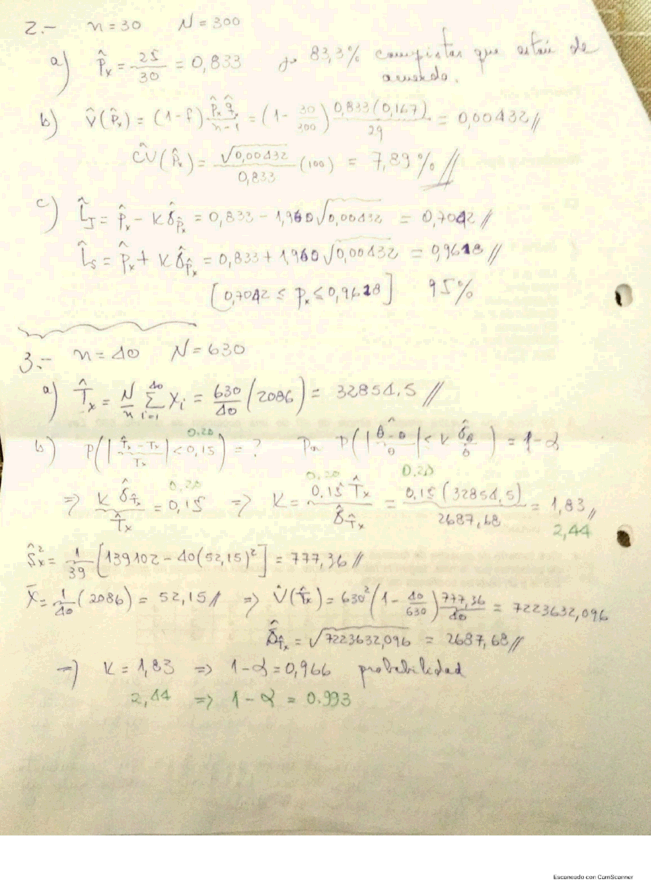 2.- n=30 N=300
a) P̂x = 25/30 = 0,833 83,3% campistas que están de
acuerdo.
b) V̂(P̂x) = (1-f) P̂x q̂x/n-1 = (1- 30/300) 0,833(0,167)/29 = 0,00432//
ĈV(P̂x) = √0,00432/0,833 (100) = 7,89%//
c) L̂I = P̂x - K σ̂P̂x = 0,833 - 1,960 √0,00432 = 0,7042//
L̂s = P̂x + K σ̂P̂x = 0,833 + 1,960 √0,00432 = 0,9618//
[0,7042 ≤ Px ≤ 0,9618] 95%
3.- n=40 N=630
a) T̂x = N/n Σ(i=1, 40) Xi = 630/40 (2086) = 32854,5 //
0.20
b) P(|T̂x - Tx/Tx| < 0,15) = ? P(|θ̂-θ/θ| < K σ̂θ̂/θ) = 1-α
0.20 0.20 0.20
⇒ K σ̂T̂x/T̂x = 0,15 ⇒ K = 0,15 T̂x/σ̂T̂x = 0.15 (32854,5)/2687,68 = 1,83//
2,44
Ŝx² = 1/39 [139102 - 40(52,15)²] = 777,36//
X̄ = 1/40 (2086) = 52,15// ⇒ V̂(T̂x) = 630² (1- 40/630) 777,36/40 = 7223632,096
σ̂T̂x = √7223632,096 = 2687,68//
⇒ K = 1,83 ⇒ 1-α = 0,966 probabilidad
2,44 ⇒ 1-α = 0.993
Escaneado con CamScanner